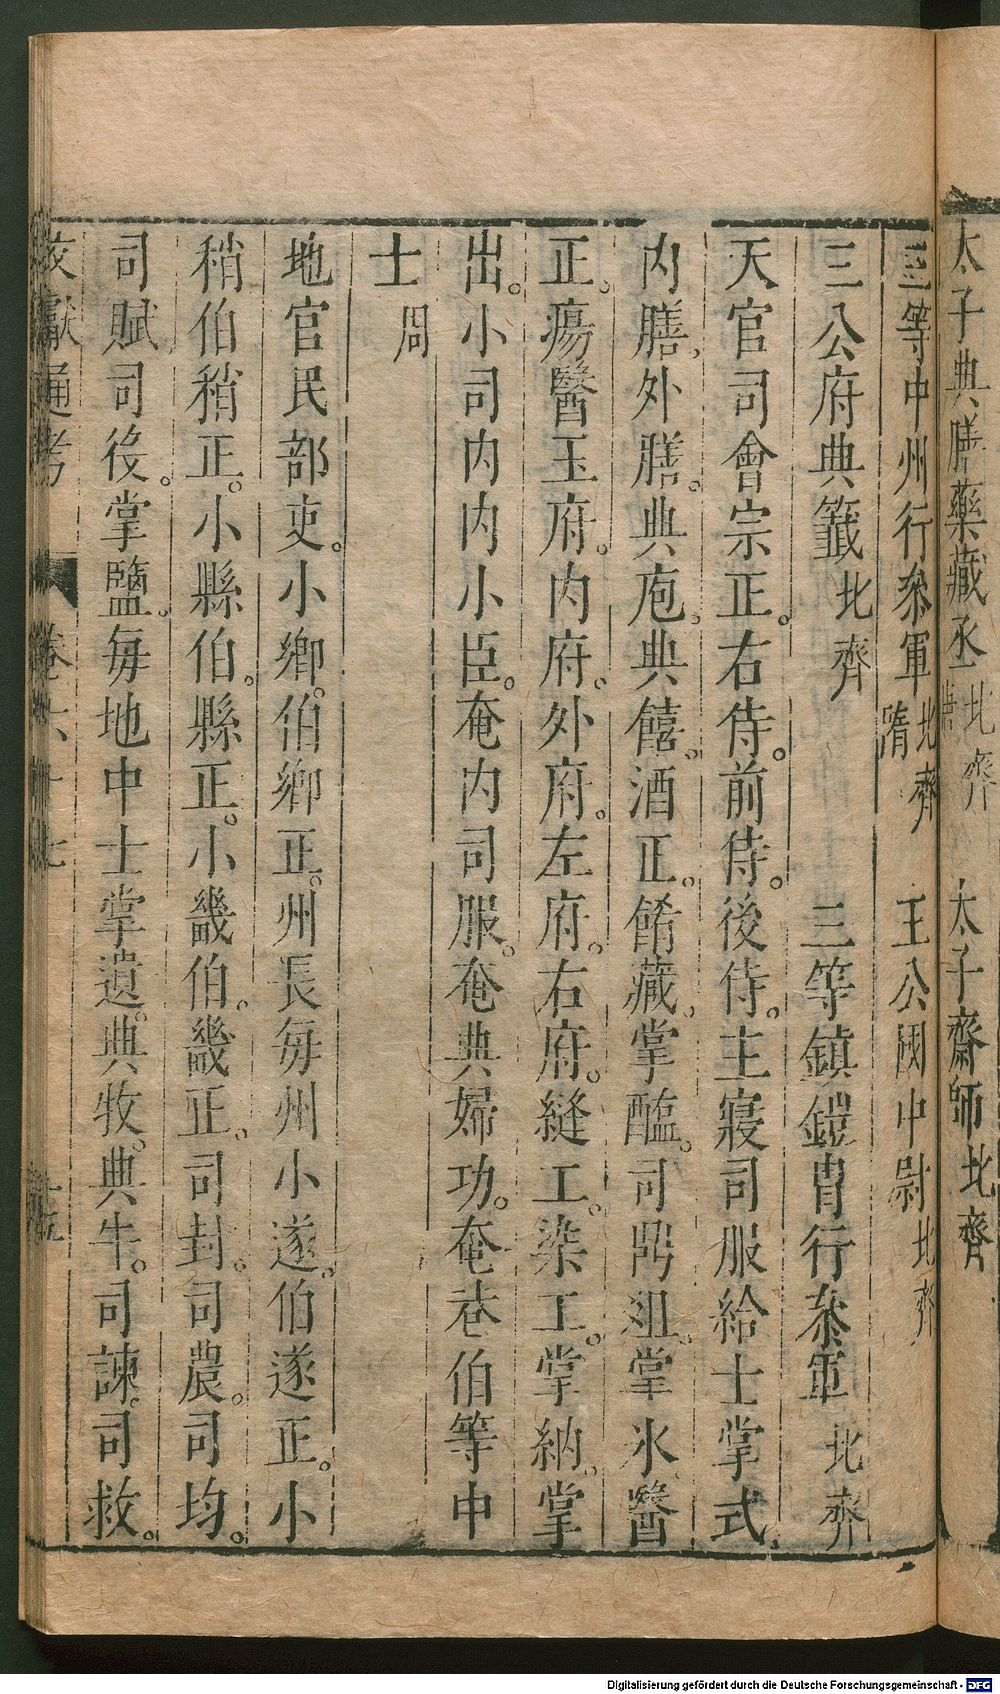 太子典膳藥藏丞北齊 太子齋師北齊
三等中州行叅軍北齊隋 王公國中尉北齊
三公府典籤北齊 三等鎮鎧曹行叅軍北齊
天官司會宗正。右侍。前侍。後侍。主寢司服給士掌式
內膳。外膳。典庖。典饎。酒正。餚藏。掌醢。司鼎俎。掌氷醫
正。瘍醫玉府。內府。外府。左府。右府。縫工。染工。掌納。掌
出。小司內內小臣。奄內司服。奄典婦功。奄巷伯等中
士周
地官民部吏。小鄉。伯鄉正。州長每州小遂。伯遂正。小
稍伯稍正。小縣伯。縣正。小畿伯。畿正。司封。司農。司均。
司賦司役。掌鹽。每地中士掌遺。典牧。典牛。司諫。司救。
文獻通考 卷六十七 十五
Digitalisierung gefördert durch die Deutsche Forschungsgemeinschaft - DFG